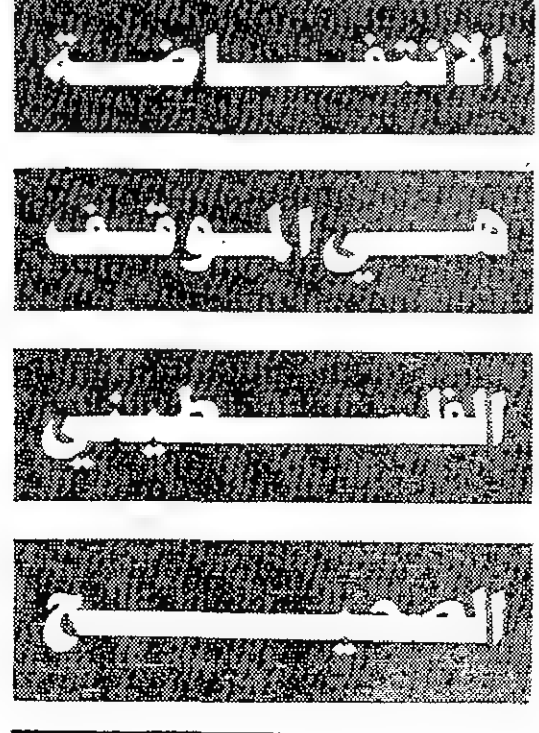 الانتفاضة
هي الموقف
الفلسطيني
الصحيح